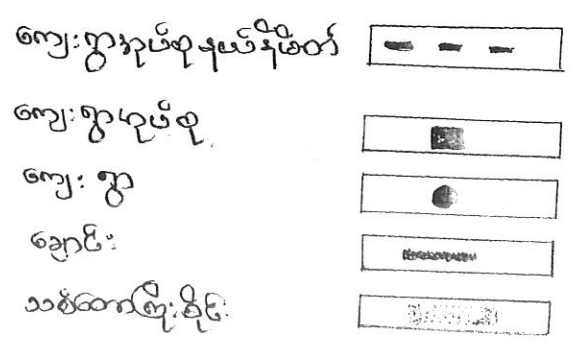 ကျေးရွာအုပ်စုနယ်နိမိတ်
ကျေးရွာအုပ်စု
ကျေး ရွာ
ချောင်း
သစ်တောကြိုးဝိုင်း